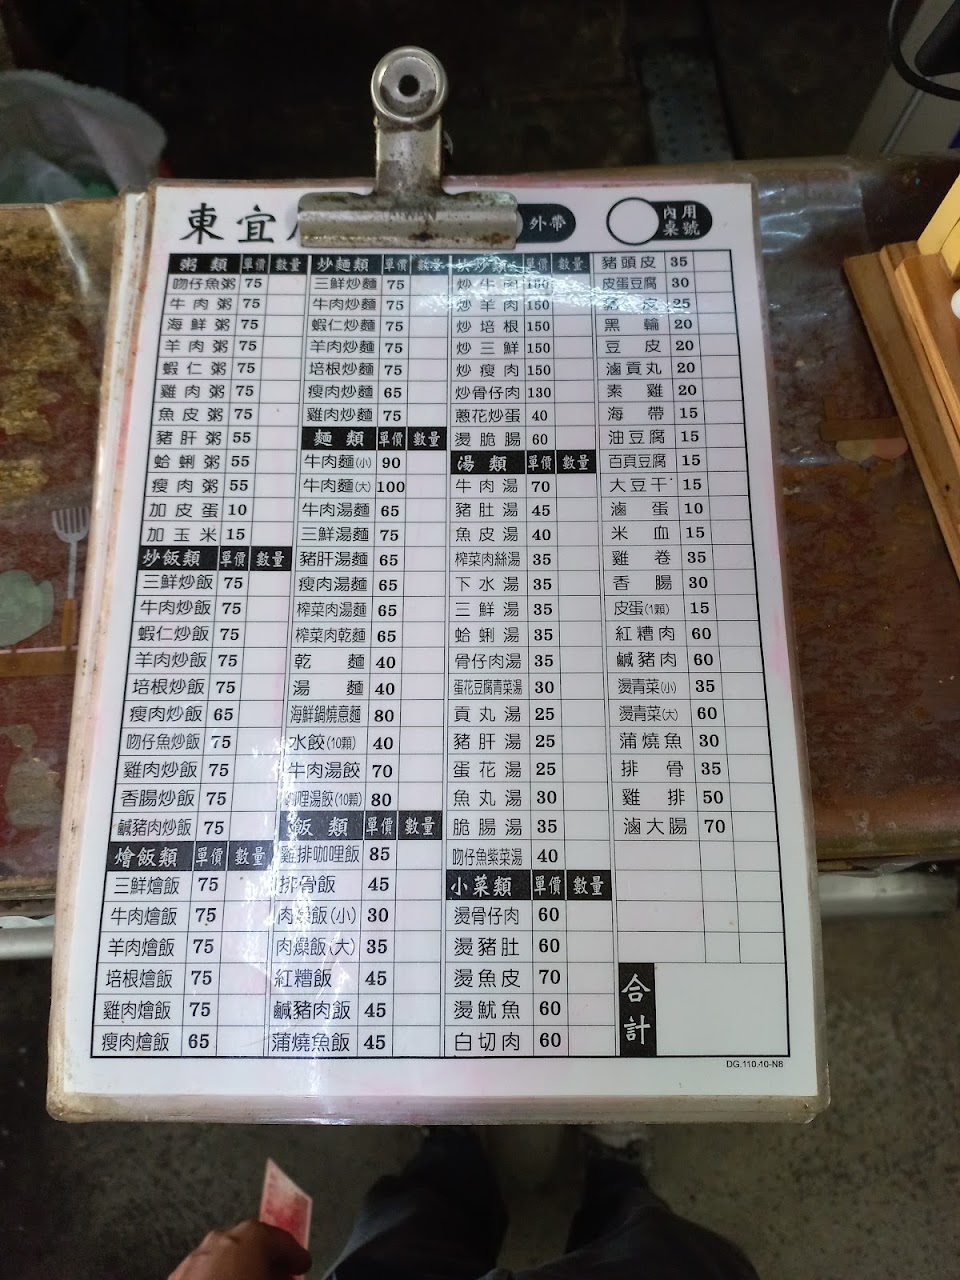 TAIWAN
東宜
外帶
內用
桌號
粥類 單價 數量
吻仔魚粥 75
牛肉粥 75
海鮮粥 75
羊肉粥 75
蝦仁粥 75
雞肉粥 75
魚皮粥 75
豬肝粥 55
蛤蜊粥 55
瘦肉粥 55
加皮蛋 10
加玉米 15
炒飯類 單價 數量
三鮮炒飯 75
牛肉炒飯 75
蝦仁炒飯 75
羊肉炒飯 75
培根炒飯 75
瘦肉炒飯 65
吻仔魚炒飯 75
雞肉炒飯 75
香腸炒飯 75
鹹豬肉炒飯 75
燴飯類 單價 數量
三鮮燴飯 75
牛肉燴飯 75
羊肉燴飯 75
培根燴飯 75
雞肉燴飯 75
瘦肉燴飯 65
炒麵類 單價 數量
三鮮炒麵 75
牛肉炒麵 75
蝦仁炒麵 75
羊肉炒麵 75
培根炒麵 75
瘦肉炒麵 65
雞肉炒麵 75
麵類 單價 數量
牛肉麵(小) 90
牛肉麵(大) 100
牛肉湯麵 65
三鮮湯麵 75
豬肝湯麵 65
瘦肉湯麵 65
榨菜肉湯麵 65
榨菜肉乾麵 65
乾麵 40
湯麵 40
海鮮鍋燒意麵 80
水餃(10顆) 40
牛肉湯餃 70
哩湯餃(10顆) 80
飯類 單價 數量
雞排咖哩飯 85
排骨飯 45
肉燥飯(小) 30
肉燥飯(大) 35
紅糟飯 45
鹹豬肉飯 45
蒲燒魚飯 45
快炒類 單價 數量
炒牛肉 150
炒羊肉 150
炒培根 150
炒三鮮 150
炒瘦肉 150
炒骨仔肉 130
蔥花炒蛋 40
燙脆腸 60
湯類 單價 數量
牛肉湯 70
豬肚湯 45
魚皮湯 40
榨菜肉絲湯 35
下水湯 35
三鮮湯 35
蛤蜊湯 35
骨仔肉湯 35
蛋花豆腐青菜湯 30
貢丸湯 25
豬肝湯 25
蛋花湯 25
魚丸湯 30
脆腸湯 35
吻仔魚紫菜湯 40
小菜類 單價 數量
燙骨仔肉 60
燙豬肚 60
燙魚皮 70
燙魷魚 60
白切肉 60
豬頭皮 35
皮蛋豆腐 30
皮 25
黑輪 20
豆皮 20
滷貢丸 20
素雞 20
海帶 15
油豆腐 15
百頁豆腐 15
大豆干 15
滷蛋 10
米血 15
雞卷 35
香腸 30
皮蛋(1顆) 15
紅糟肉 60
鹹豬肉 60
燙青菜(小) 35
燙青菜(大) 60
蒲燒魚 30
排骨 35
雞排 50
滷大腸 70
合計
DG.110.10-N8